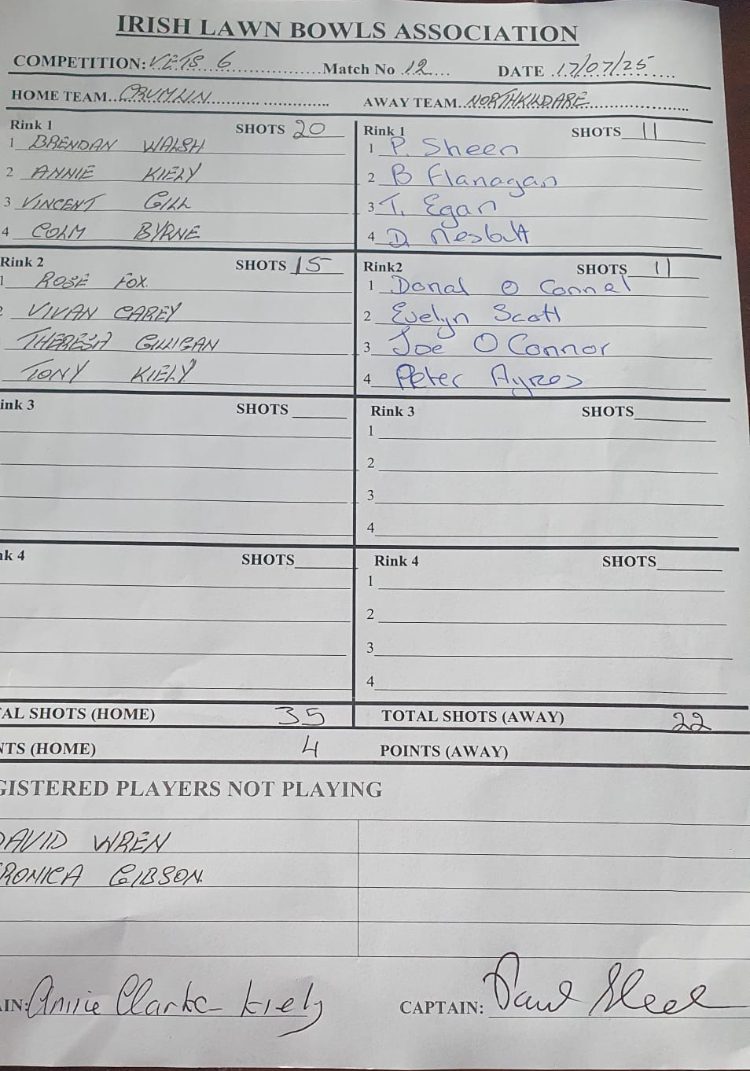 IRISH LAWN BOWLS ASSOCIATION
COMPETITION: VETS 6 Match No 12 DATE 17/07/25
HOME TEAM CRUMLIN AWAY TEAM NORTHKILDARE
Rink 1 SHOTS 20
1 BRENDAN WALSH
2 ANNIE KIELY
3 VINCENT GILL
4 COLM BYRNE
Rink 1 SHOTS 11
1 P. Sheen
2 B Flanagan
3 T. Egan
4 D. Nesbatt
Rink 2 SHOTS 15
1 ROSE FOX
2 VIVIAN CAREY
THERESA GILLIGAN
TONY KIELY
Rink2 SHOTS 11
1 Donal O Connel
2 Evelyn Scott
3 Joe O Connor
4 Peter Ayres
ink 3 SHOTS
Rink 3 SHOTS
1
2
3
4
nk 4 SHOTS
Rink 4 SHOTS
1
2
3
4
AL SHOTS (HOME) 35 TOTAL SHOTS (AWAY) 22
NTS (HOME) 4 POINTS (AWAY)
GISTERED PLAYERS NOT PLAYING
DAVID WREN
RONICA GIBSON
AIN: Annie Clarke Kiely CAPTAIN: Paul